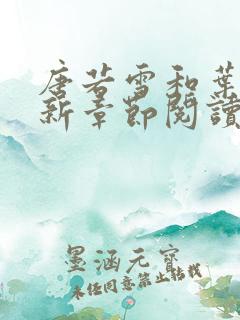 唐若雪和葉
新章節閱讀
墨涵元寶
未经同意禁止转载